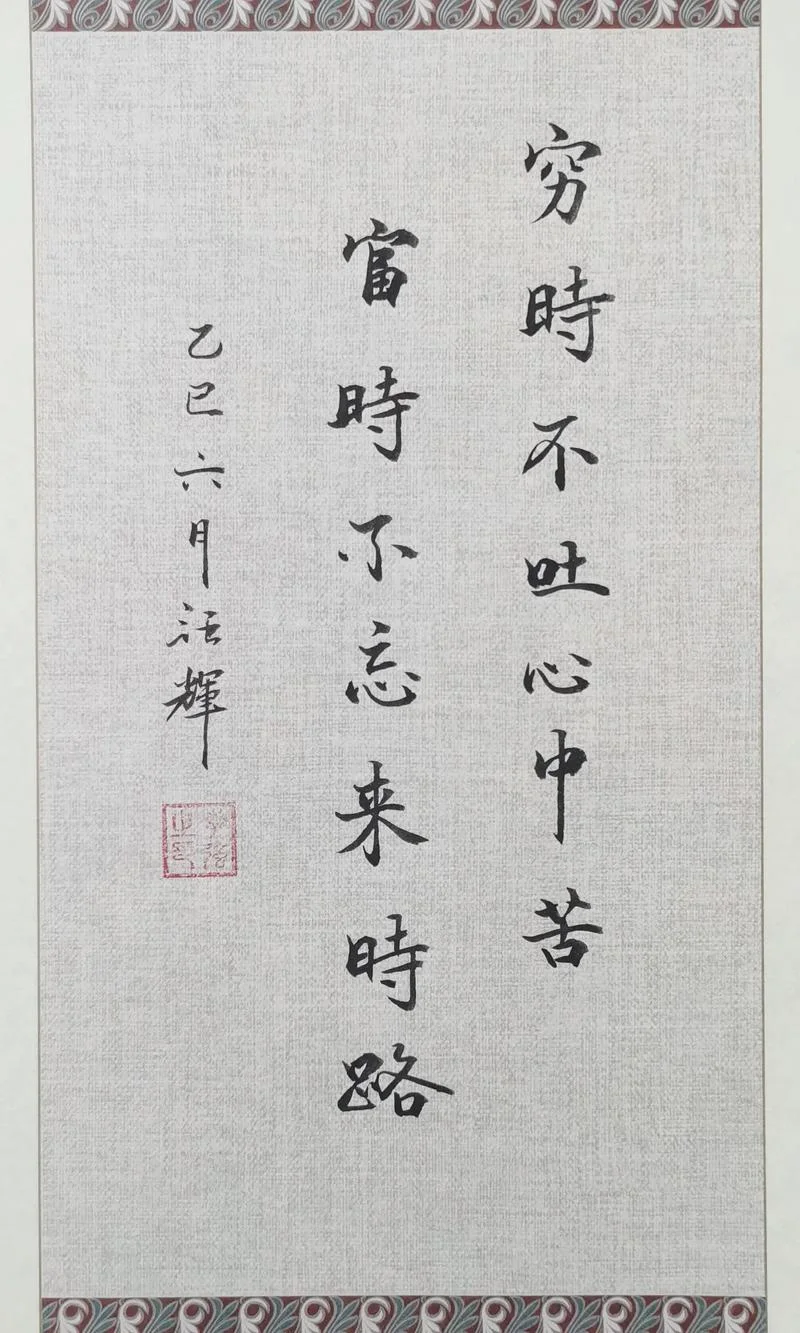 穷時不吐心中苦
富時不忘来時路
乙巳六月 輝